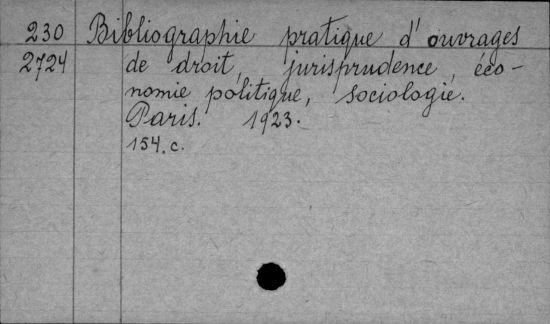 230 Bibliographie pratique d'ouvrages
2724 de droit, jurisprudence, éco-
nomie politique, sociologie.
Paris. 1923.
154. c.